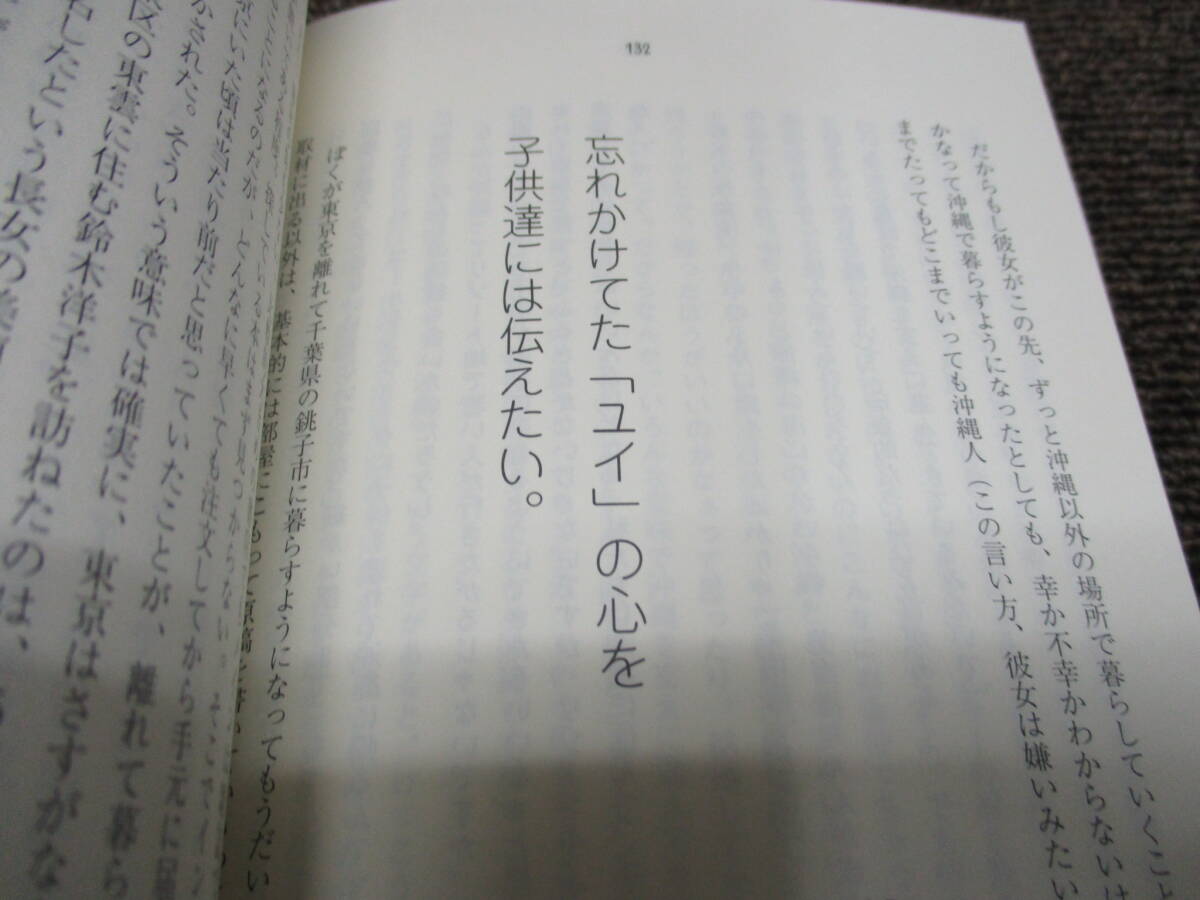 132
だからもし彼女がこの先、ずっと沖縄以外の場所で暮らしていくこと
かなって沖縄で暮らすようになったとしても、幸か不幸かわからないけ
までたってもどこまでいっても沖縄人（この言い方、彼女は嫌いみたい
忘れかけてた「ユイ」の心を
子供達には伝えたい。
ぼくが東京を離れて千葉県の銚子市に暮らすようになってもうだい
取材に出る以外は、基本的には部屋にこもって原稿を書いている
京にいた頃は当たり前だと思っていたことが、離れて暮ら
かされた。そういう意味では確実に、東京はさすがな
区の東雲に住む鈴木洋子を訪ねたのは、
したという長女の